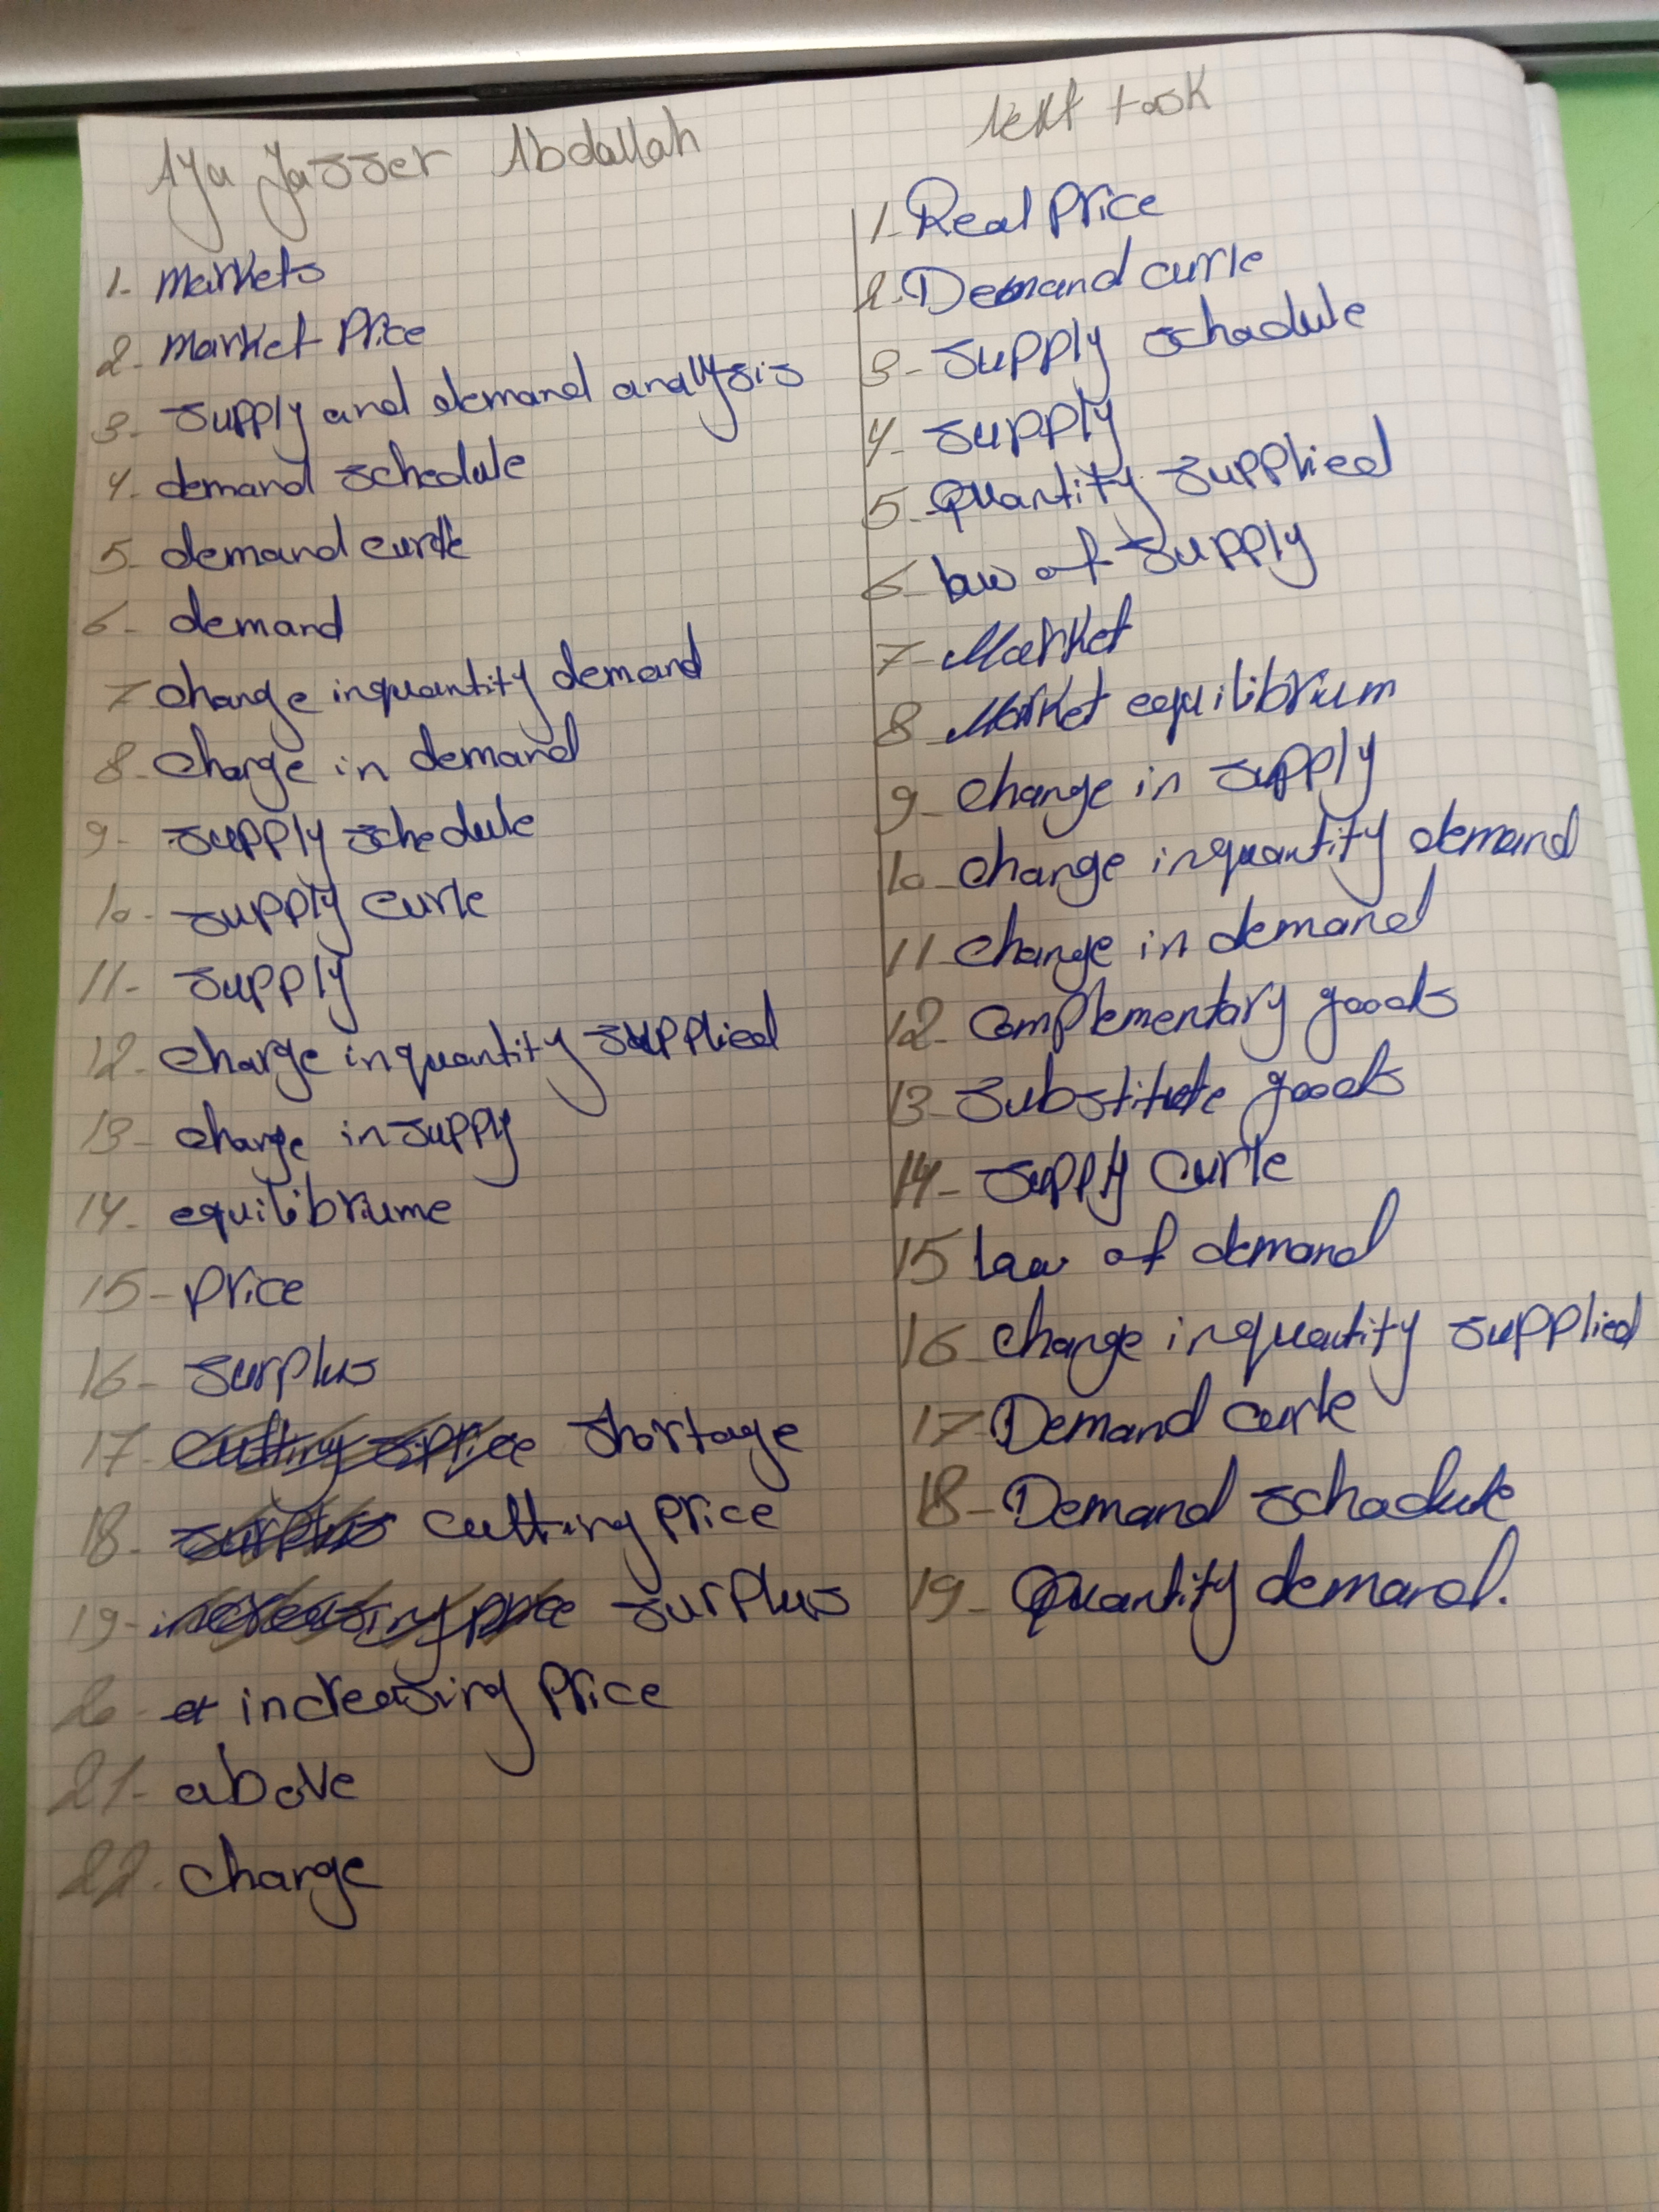 Aya Yasser Abdallah
1- Markets
2- Market Price
3- Supply and demand analysis
4- demand schedule
5- demand curve
6- demand
7- change inquantity demand
8- change in demand
9- supply schedule
10- supply curve
11- supply
12- change inquantity supplied
13- change in supply
14- equilibriume
15- price
16- surplus
17- cutting price shortage
18- surplus cutting price
19- increasing price surplus
20- increasing Price
21- above
22- change
Next task
1- Real Price
2- Demand curve
3- supply schadule
4- supply
5- Quantity supplied
6- law of supply
7- Market
8- Market equilibrium
9- change in supply
10- change inquantity demand
11 change in demand
12- complementary goods
13- substitute goods
14- supply curve
15 law of demand
16- change inquantity supplied
17- Demand curve
18- Demand schadule
19- Quantity demand.